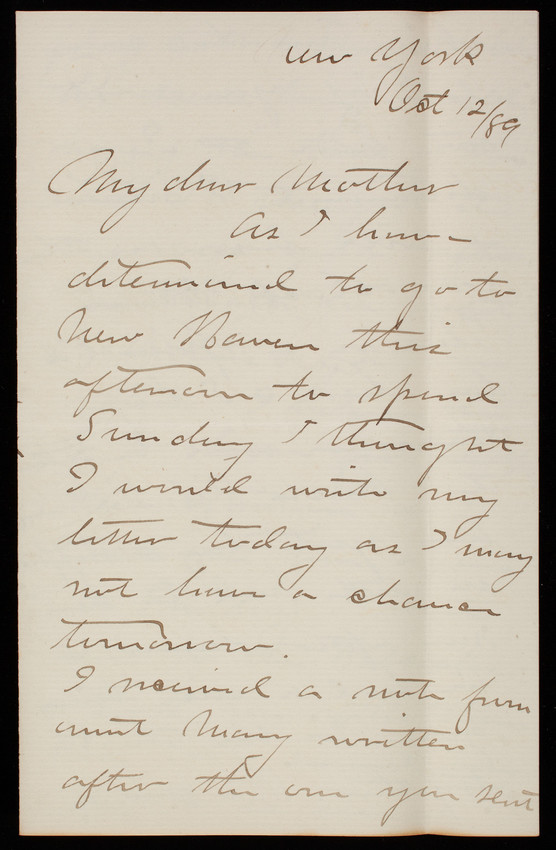 New York
Oct 12/89
My dear Mother
As I have
determined to go to
New Haven this
afternoon to spend
Sunday I thought
I would write my
letter today as I may
not have a chance
tomorrow.
I received a note from
aunt Mary written
after the one you sent